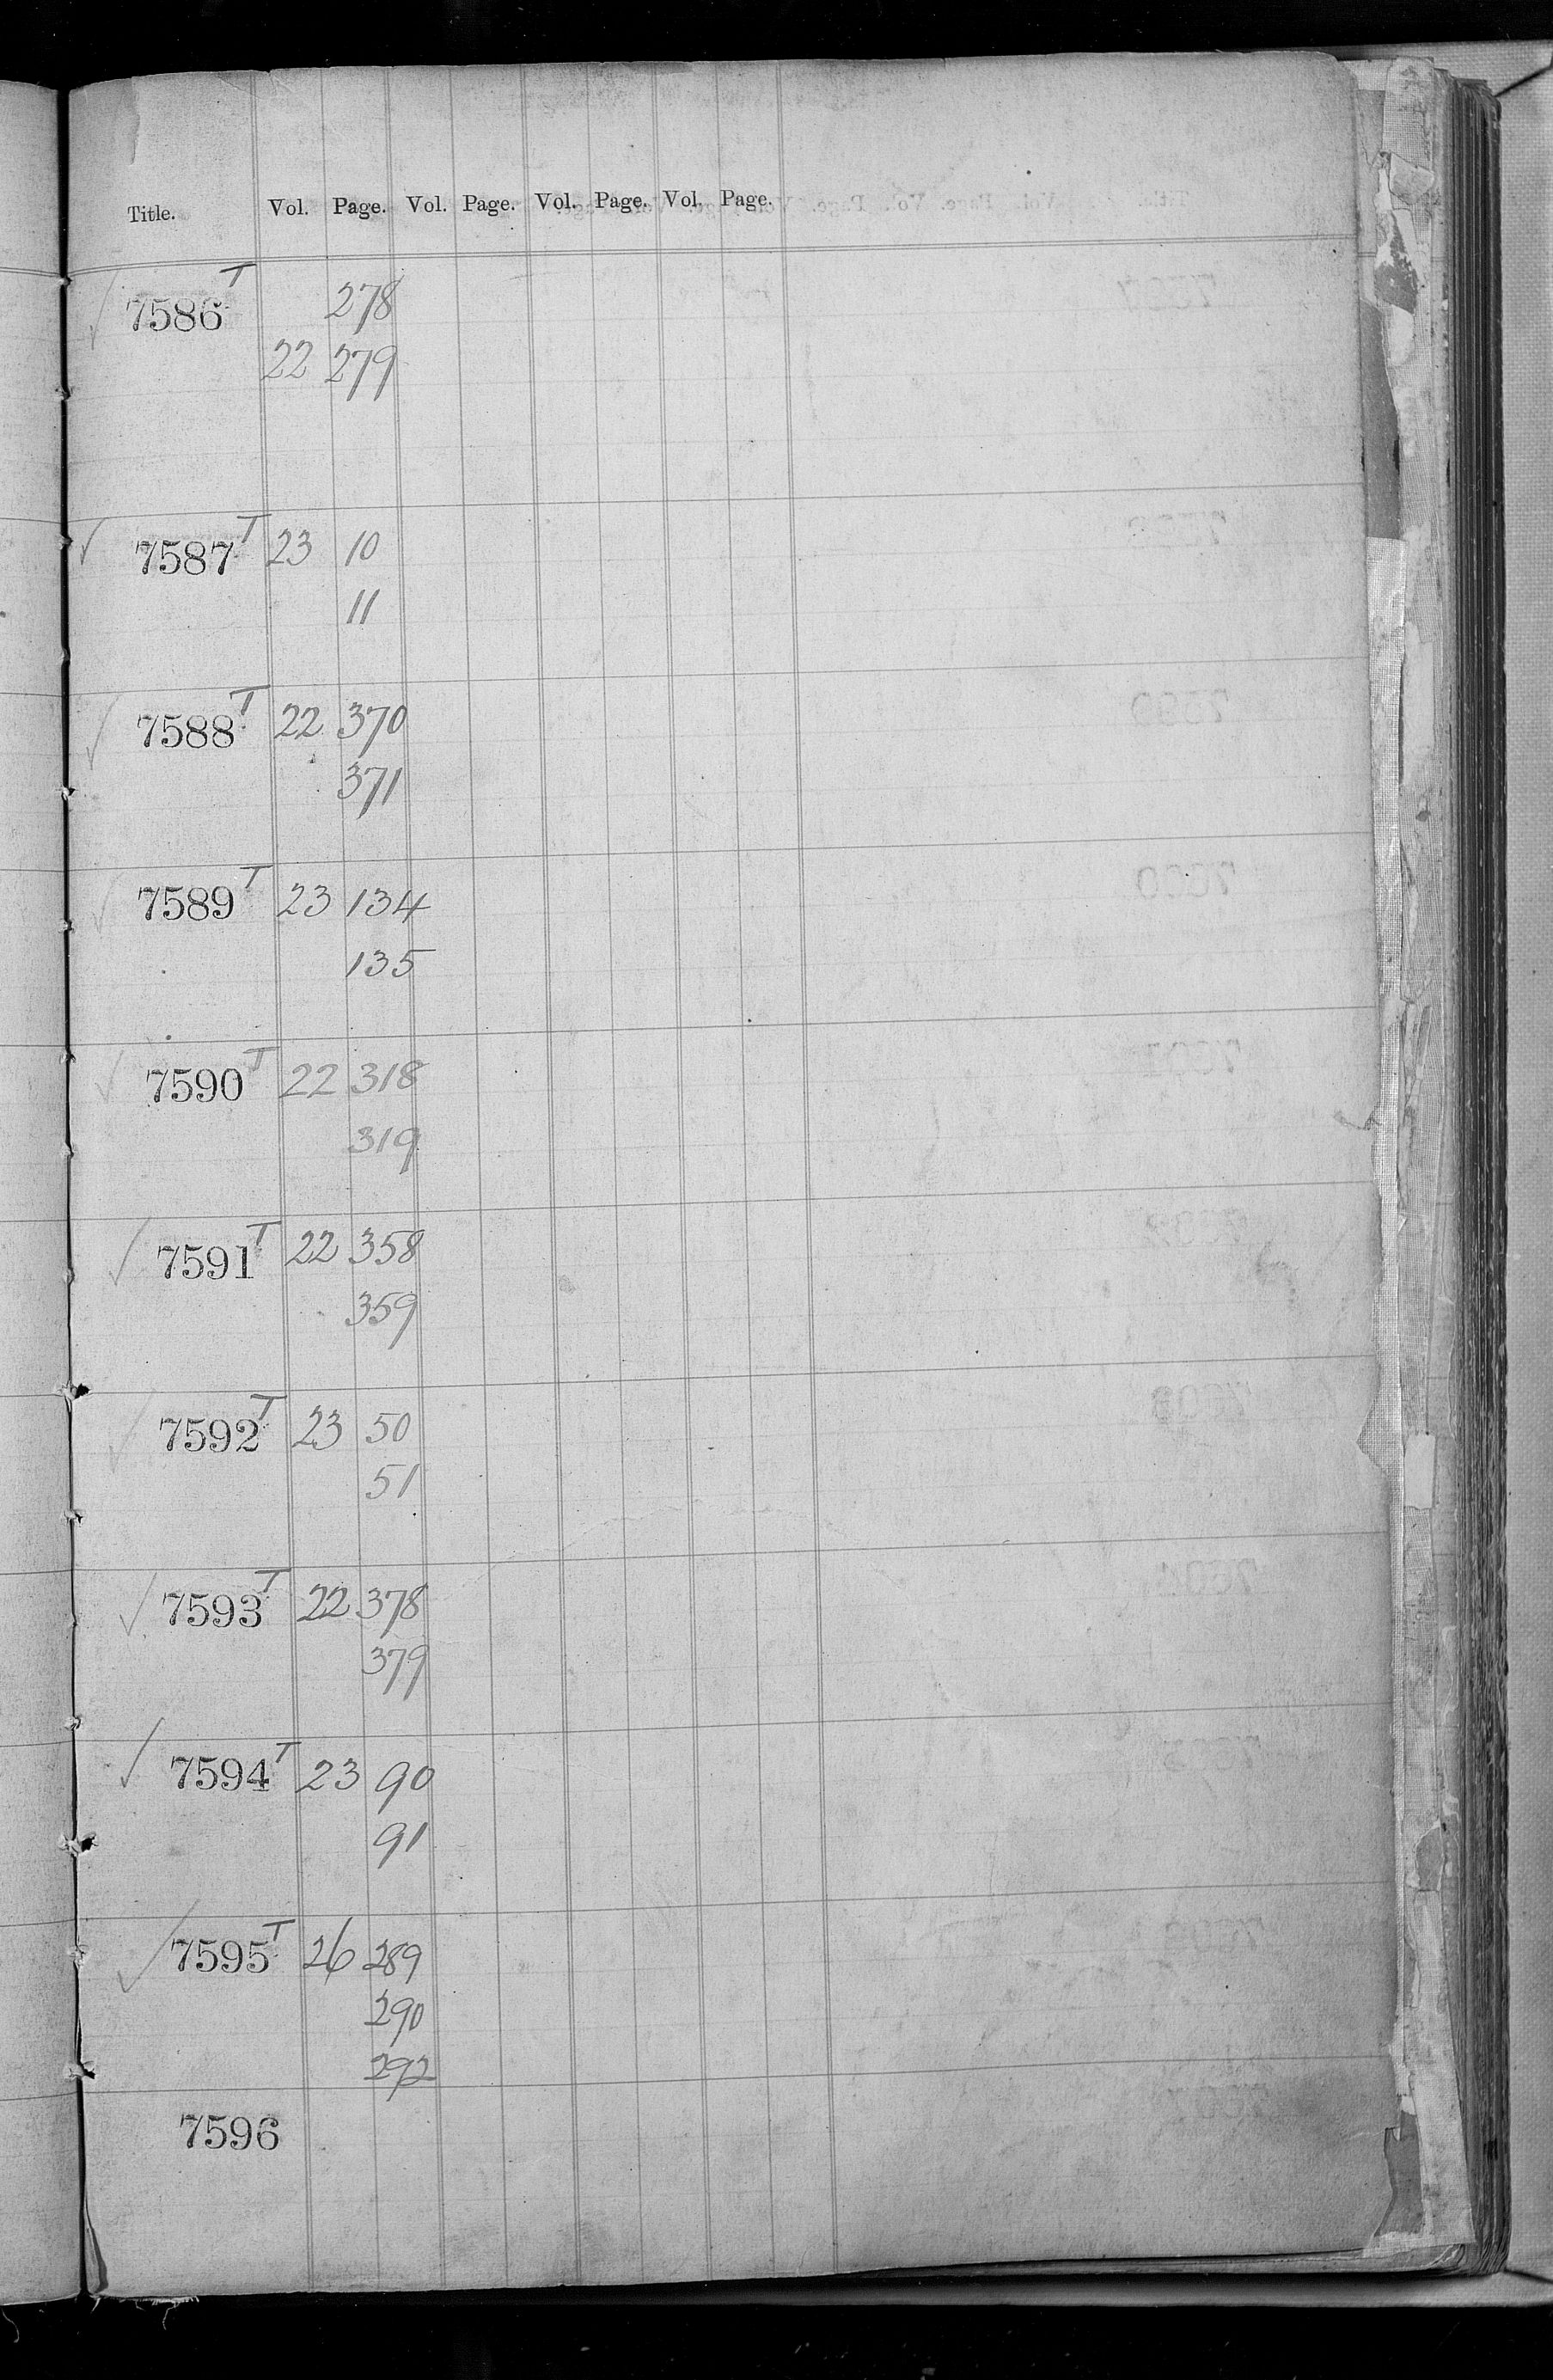 Title. Vol. Page. Vol. Page. Vol. Page. Vol. Page.
✓ 7586 T 278
22 279
✓ 7587 T 23 10
11
✓ 7588 T 22 370
371
✓ 7589 T 23 134
135
✓ 7590 T 22 318
319
✓ 7591 T 22 358
359
✓ 7592 T 23 50
51
✓ 7593 T 22 378
379
✓ 7594 T 23 90
91
✓ 7595 T 26 289
290
292
7596